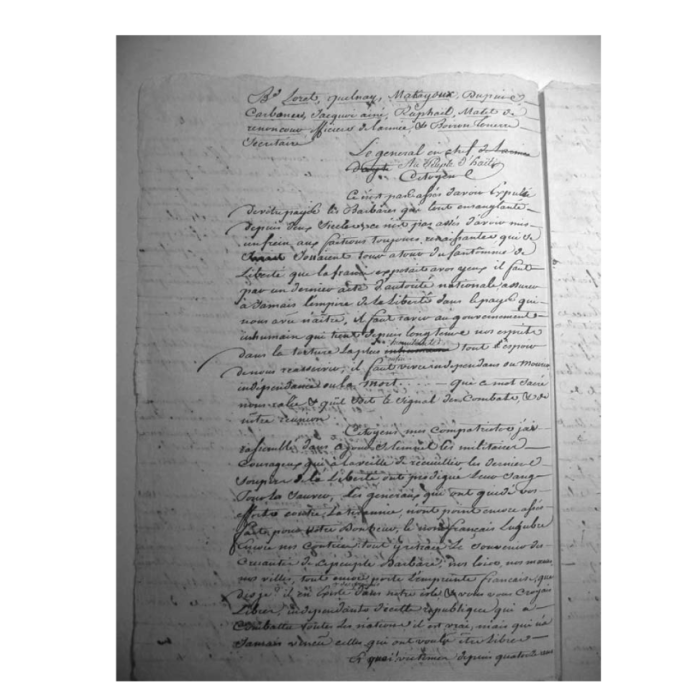 Bd Loret, quelnay, Makejoux, Dupuis
Carbonees, Jacques ainé, Raphael, Malet de
renoncour, officiers de l'armée, & Borion tonerre
Secretaire
Le general en chef de l'armee
Au Peuple d'haiti
Citoyen
Ce n'est pas assés d'avoir Expulsé
de votre payés les Barbares qui l'ont ensanglanté
depuis deux Siecles ce n'est pas assés d'avoir mis
un frein aux factions toujours renaissantes qui se
Jouaient tour a tour du fantôme de
Liberté que la france exposait a vos yeux il faut
par un dernier acte d'autorité nationale assurer
à Jamais l'empire de la Liberté dans le pays qui
nous a vu naître, il faut ravir au gouvernement
inhumain qui tient depuis longtems nos esprits
dans la torture la plus humiliante tout l'espoir
de nous reasservir, il faut vivre independans ou mourir
independance ou la mort . . . . . . que ce mot Sacré
nous ralie & qu'il soit le Signal des Combats, & de
notre réunion
Citoyens mes compatriotes j'ai
rassemblé dans ce jour Solennel ces militaires
Courageux qui à la veille de recueillir les derniers
Soupirs de la Liberté ont prodigué leur Sang
pour la Sauver, les generaux qui ont guidé vos
efforts contre la tirannie n'ont point encore assés
fait pour votre Bonheur, le nom français Lugubre
encore nos Contrées tout y retrace le Souvenir des
Cruautés de ce peuple Barbare, nos lois, nos mœurs
nos villes, tout encore porte l'empreinte français, que
dis je? il en Existe dans notre isle & vous vous Croyés
Libres, independants d'cette republique qui a
Combattu toutes les nations il est vrai, mais qui n'a
Jamais vaincu celles qui ont voulu être libres
Et quoi victimes depuis quatorze ans